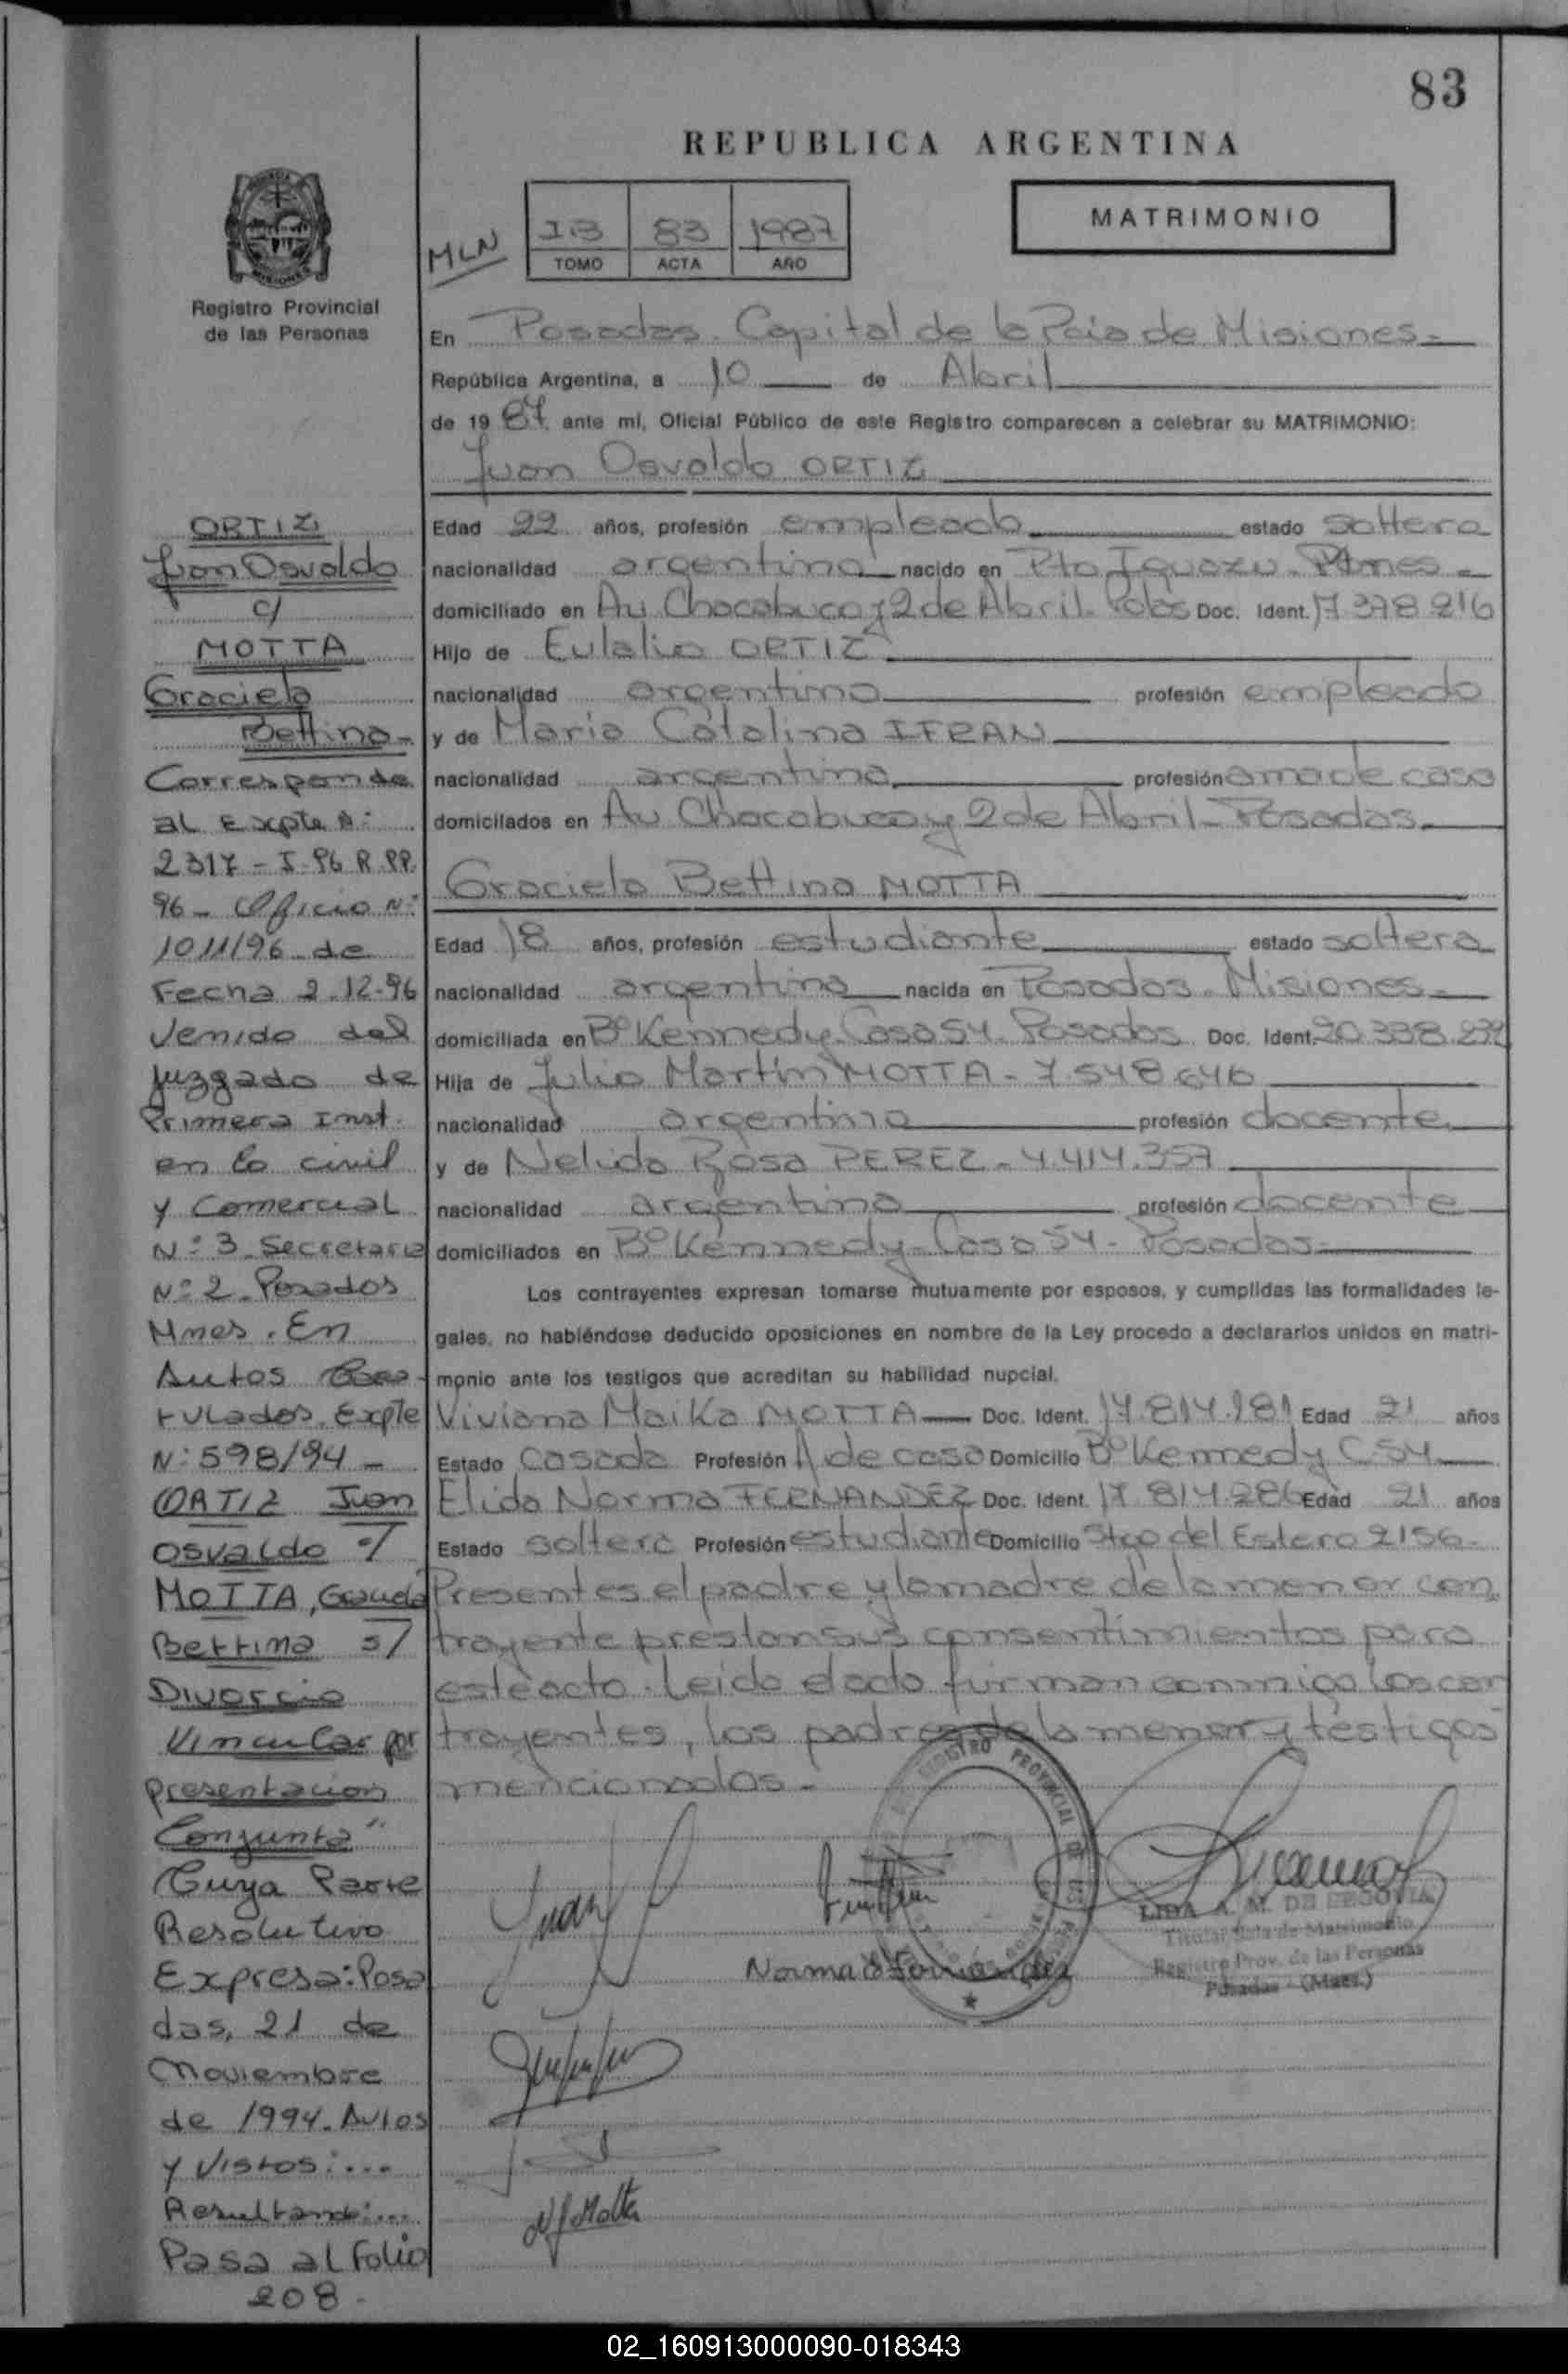 83
REPUBLICA ARGENTINA
MATRIMONIO
MLN
83 1987
TOMO ACTA AÑO
MISIONES
Registro Provincial
de las Personas
En Posadas. Capital de la Pcia de Misiones.-
República Argentina, a 10 de Abril
de 1987. ante mi, Oficial Público de este Registro comparecen a celebrar su MATRIMONIO:
Juan Osvaldo ORTIZ
Edad 22 años, profesión empleado estado soltero
nacionalidad argentina nacido en Pto Iguazu -
domiciliado en Av Chacabuco y 2 de Abril - Doc. Ident. 17.378.216
Hijo de Eulalio ORTIZ
nacionalidad argentina profesión empleado
y de Maria Catalina IFRAN
nacionalidad argentina profesión ama de casa
domiciliados en Av Chacabuco y 2 de Abril - Posadas.
Graciela Bettina MOTTA
Edad 18 años, profesión estudiante estado soltera
nacionalidad argentina nacida en Posadas - Misiones.-
domiciliada en Bº Kennedy - Casa 54 - Posadas Doc. Ident. 20.338.
Hija de Julio Martín MOTTA - 7.548.646
nacionalidad argentina profesión docente
y de Nelida Rosa PEREZ - 4.414.357
nacionalidad argentina profesión docente
domiciliados en Bº Kennedy - Casa 54 - Posadas -
Los contrayentes expresan tomarse mutuamente por esposos, y cumplidas las formalidades le-
gales, no habiéndose deducido oposiciones en nombre de la Ley procedo a declararlos unidos en matri-
monio ante los testigos que acreditan su habilidad nupcial.
Viviana Maika MOTTA Doc. Ident. 17.814.181 Edad 21 años
Estado Casada Profesión A de casa Domicilio Bº Kennedy C 54
Elida Norma FERNANDEZ Doc. Ident. 17.814.286 Edad 21 años
Estado soltera Profesión estudiante Domicilio Stgo del Estero 2156.
Presentes el padre y la madre de la menor con
trayente prestan sus consentimientos para
este acto. Leida el acta firman conmigo los con
trayentes, los padres de la menor y testigos
mencionados.-
ORTIZ
Juan Osvaldo
c/
MOTTA
Graciela
Bettina-
Corresponde
al Expte Nº:
2317 - I-96 R.PP.
96- Oficio Nº:
1011/96 de
Fecha 2.12.96
Venido del
Juzgado de
Primera Inst.
en lo civil
y Comercial
Nº: 3 Secretaria
Nº: 2. Posadas
Mnes. En
Autos
tulados. Expte
Nº: 598/94 -
ORTIZ Juan
Osvaldo c/
MOTTA, Graciela
Bettina s/
Divorcio
Vincular por
presentacion
Conjunta"
Cuya Parte
Resolutivo
Expresa: Posa
das, 21 de
Noviembre
de 1994. Autos
y Vistos: ...
Resultando: ...
Pasa al Folio
208.-
REGISTRO PROVINCIAL DE LAS PERSONAS
Juan
LIDA A. M. DE SEGOVIA
Titular Sala de Matrimonio
Registro Prov. de las Personas
Posadas - (Mnes.)
Norma Fernández
N Motta
02_160913000090-018343